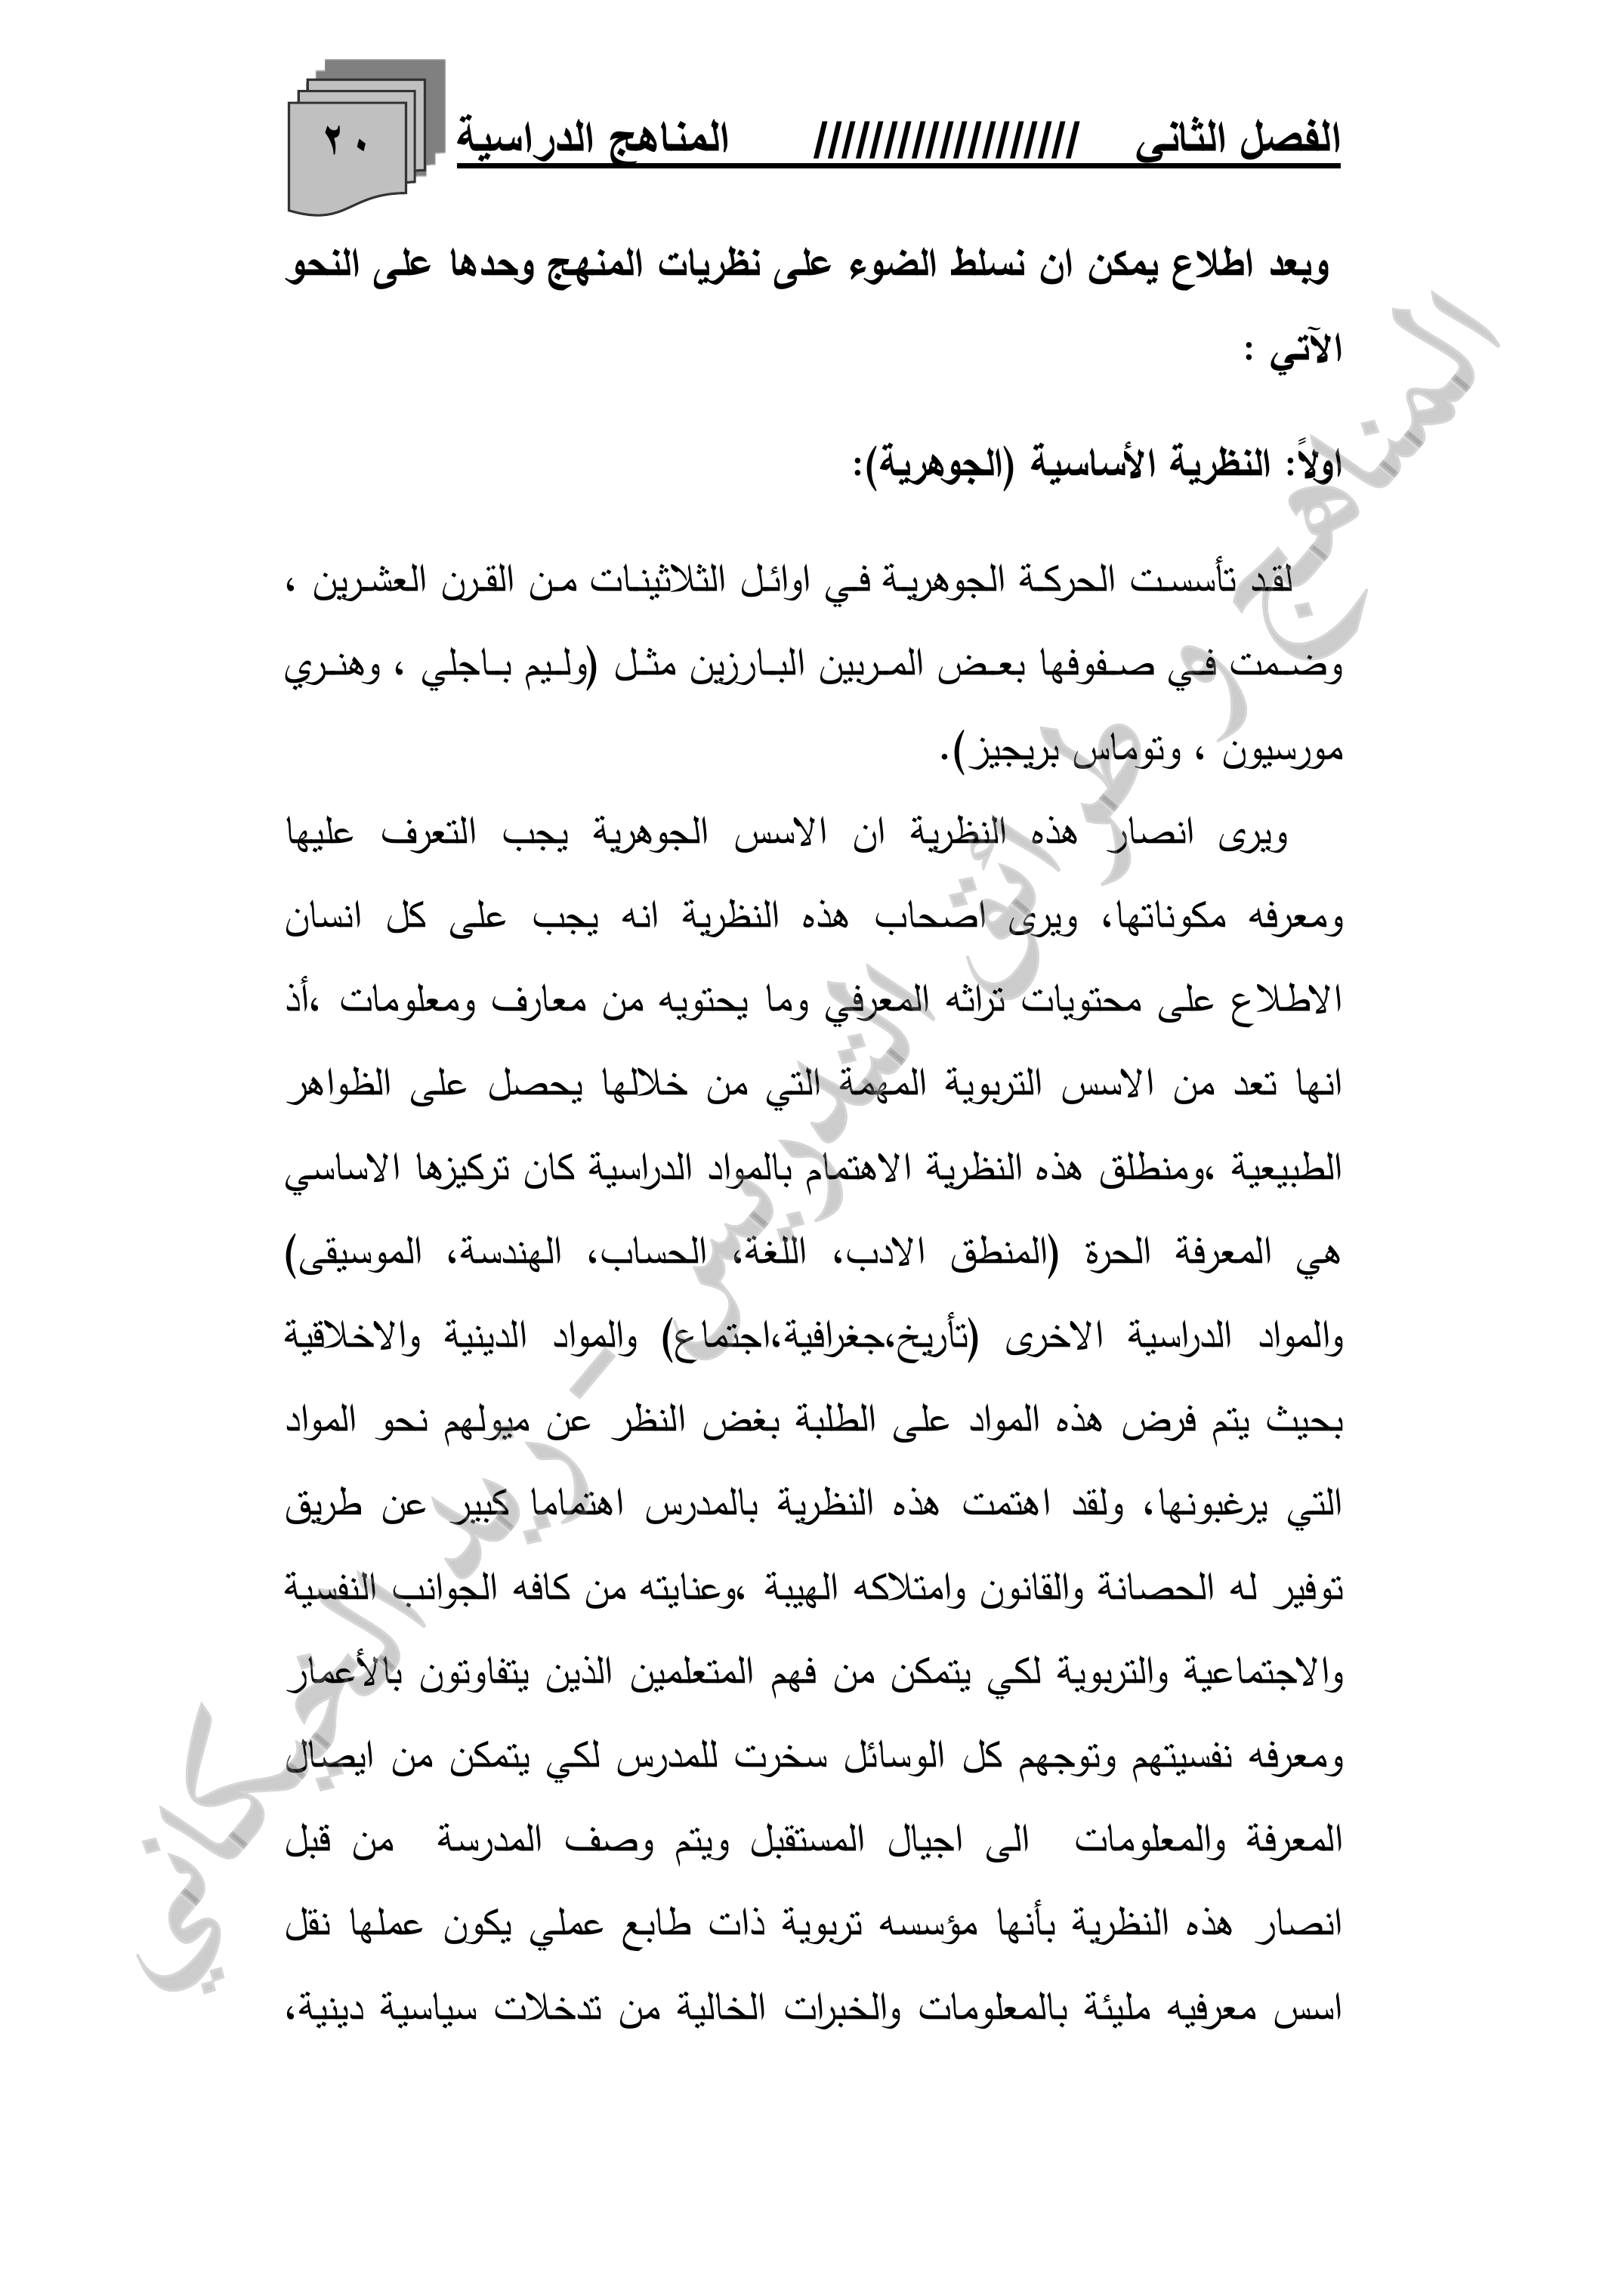 الفصل الثاني /////////////////// المناهج الدراسية ٢٠
وبعد اطلاع يمكن ان نسلط الضوء على نظريات المنهج وحدها على النحو
الآتي :
اولاً: النظرية الأساسية (الجوهرية):
لقد تأسست الحركة الجوهرية في اوائل الثلاثينات من القرن العشرين ،
وضمت في صفوفها بعض المربين البارزين مثل (وليم باجلي ، وهنري
مورسيون ، وتوماس بريجيز).
ويرى انصار هذه النظرية ان الاسس الجوهرية يجب التعرف عليها
ومعرفه مكوناتها، ويرى اصحاب هذه النظرية انه يجب على كل انسان
الاطلاع على محتويات تراثه المعرفي وما يحتويه من معارف ومعلومات ،أذ
انها تعد من الاسس التربوية المهمة التي من خلالها يحصل على الظواهر
الطبيعية ،ومنطلق هذه النظرية الاهتمام بالمواد الدراسية كان تركيزها الاساسي
هي المعرفة الحرة (المنطق الادب، اللغة، الحساب، الهندسة، الموسيقى)
والمواد الدراسية الاخرى (تأريخ،جغرافية،اجتماع) والمواد الدينية والاخلاقية
بحيث يتم فرض هذه المواد على الطلبة بغض النظر عن ميولهم نحو المواد
التي يرغبونها، ولقد اهتمت هذه النظرية بالمدرس اهتماما كبير عن طريق
توفير له الحصانة والقانون وامتلاكه الهيبة ،وعنايته من كافه الجوانب النفسية
والاجتماعية والتربوية لكي يتمكن من فهم المتعلمين الذين يتفاوتون بالأعمار
ومعرفه نفسيتهم وتوجهم كل الوسائل سخرت للمدرس لكي يتمكن من ايصال
المعرفة والمعلومات الى اجيال المستقبل ويتم وصف المدرسة من قبل
انصار هذه النظرية بأنها مؤسسه تربوية ذات طابع عملي يكون عملها نقل
اسس معرفيه مليئة بالمعلومات والخبرات الخالية من تدخلات سياسية دينية،
المناهج و طرائق التدريس - ريد الخيكاني